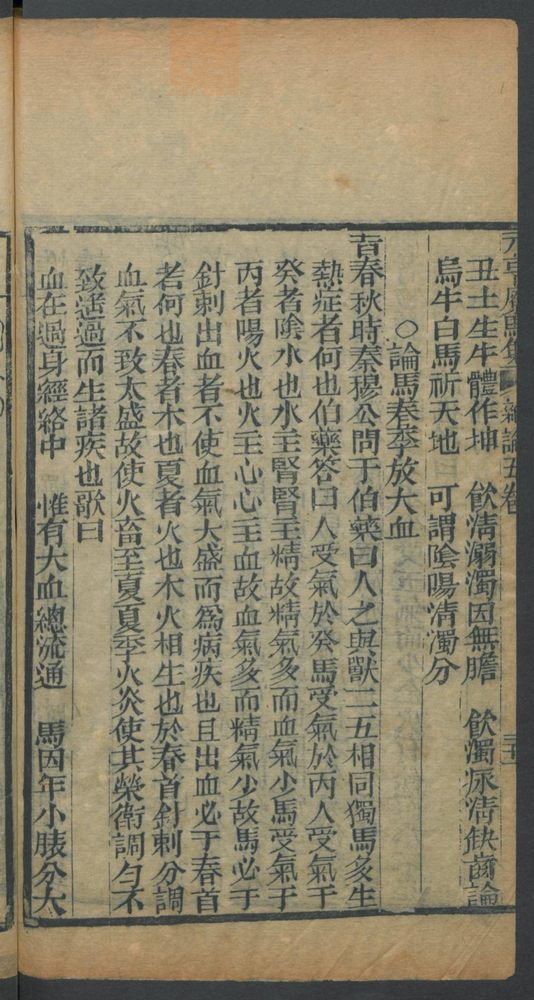 元亨療馬集 雜論五卷
丑土生牛體作坤 飲淸溺濁因無膽 飲濁尿淸缺齒論
烏牛白馬祈天地 可謂陰陽淸濁分
○論馬春季放大血
昔春秋時秦穆公問于伯藥曰人之與獸二五相同獨馬多生
熱症者何也伯藥答曰人受氣於癸馬受氣於丙人受氣于
癸者陰水也水主腎腎主精故精氣多而血氣少馬受氣于
丙者陽火也火主心心主血故血氣多而精氣少故馬必于
針刺出血者不使血氣大盛而爲病疾也且出血必于春首
若何也春者木也夏者火也木火相生也於春首針刺分調
血氣不致太盛故使火畜至夏夏季火炎使其榮衛調勻不
致逼過而生諸疾也歌曰
血在過身經絡中 惟有大血總流通 馬因年小胲分大